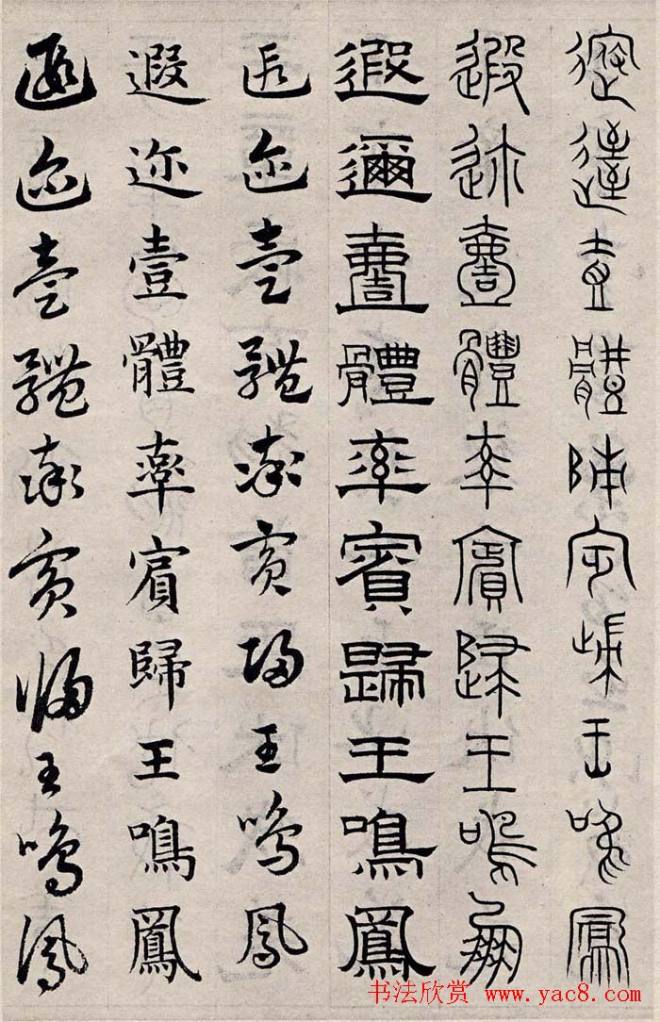 遐邇壹體率賓歸王鳴鳳
遐迩壹體率賓歸王鳴鳳
遐邇壹體率賓歸王鳴鳳
遐迩壹體率賓歸王鳴鳳
遐迩壹體率賔歸王鳴鳳
遐迩壹體率賓歸王鳴鳳
书法欣赏 www.yac8.com